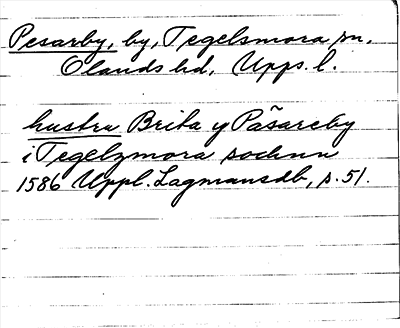 Pesarby, by, Tegelsmora sn.
Olands hd, Upps. l.
hustru Brita y Påsareby
i Tegelzmora sochnn
1586 Uppl. Lagmansdb, s. 51.